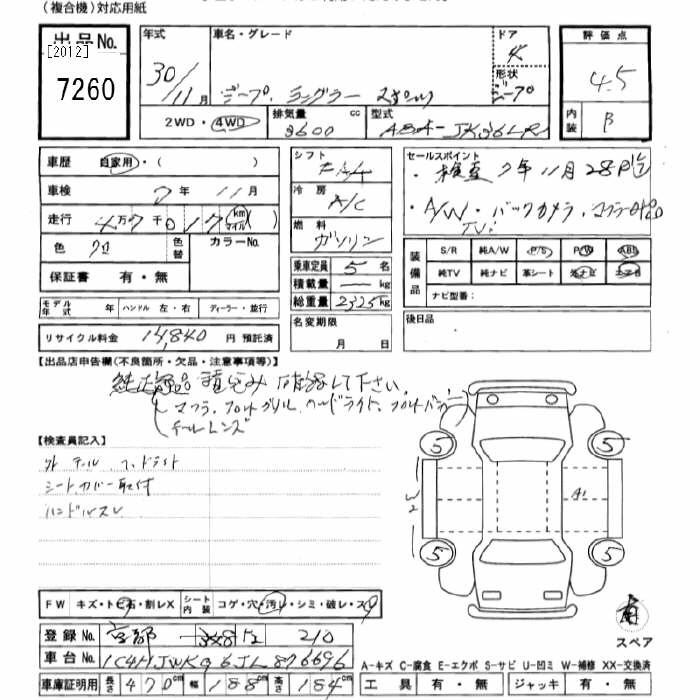 (複合機)対応用紙
出品No.
[2012]
7260
年式
30/11月
車名・グレード
ジープ ラングラー スポーツ
ドア
形状
ジープ
評価点
4.5
内装
B
2WD・4WD
排気量
3600 cc
型式
ABA-JK36LR
車歴 自家用・( )
車検 年 11月
走行 万7千0 km マイル
色 クロ 色替 カラーNo.
保証書 有・無
シフト
冷房
A/C
燃料
ガソリン
乗車定員 5 名
積載量 — kg
総重量 2325 kg
セールスポイント
・検査 7年11月28日迄
・A/W・バックカメラ・マフラー
TV
装備品
S/R 純A/W P/S P/W ABS
純TV 純ナビ 革シート 社ナビ エアB
ナビ型番:
モデル年式 年 ハンドル 左・右 ディーラー・並行
リサイクル料金 14,840 円 預託済
名変期限
月 日
後日品
【出品店申告欄(不良箇所・欠品・注意事項等)】
純正部品積込み 確認して下さい。
マフラ、フロントグリル、ヘッドライト、フロントバンパー
テールレンズ
【検査員記入】
外 テール ヘッドライト
シートカバー取付
ハンドルスレ
5 5
W2
A1
5 5
FW キズ・トビ石・割レX シート内装 コゲ・穴・汚レ・シミ・破レ・スレ
有
スペア
登録No. 京都 210
車台No. 1C4HJWKG6JL876696
A-キズ C-腐食 E-エクボ S-サビ U-凹ミ W-補修 XX-交換済
車庫証明用 長さ 470cm 幅 188cm 高さ 184cm
工具 有・無 ジャッキ 有・無